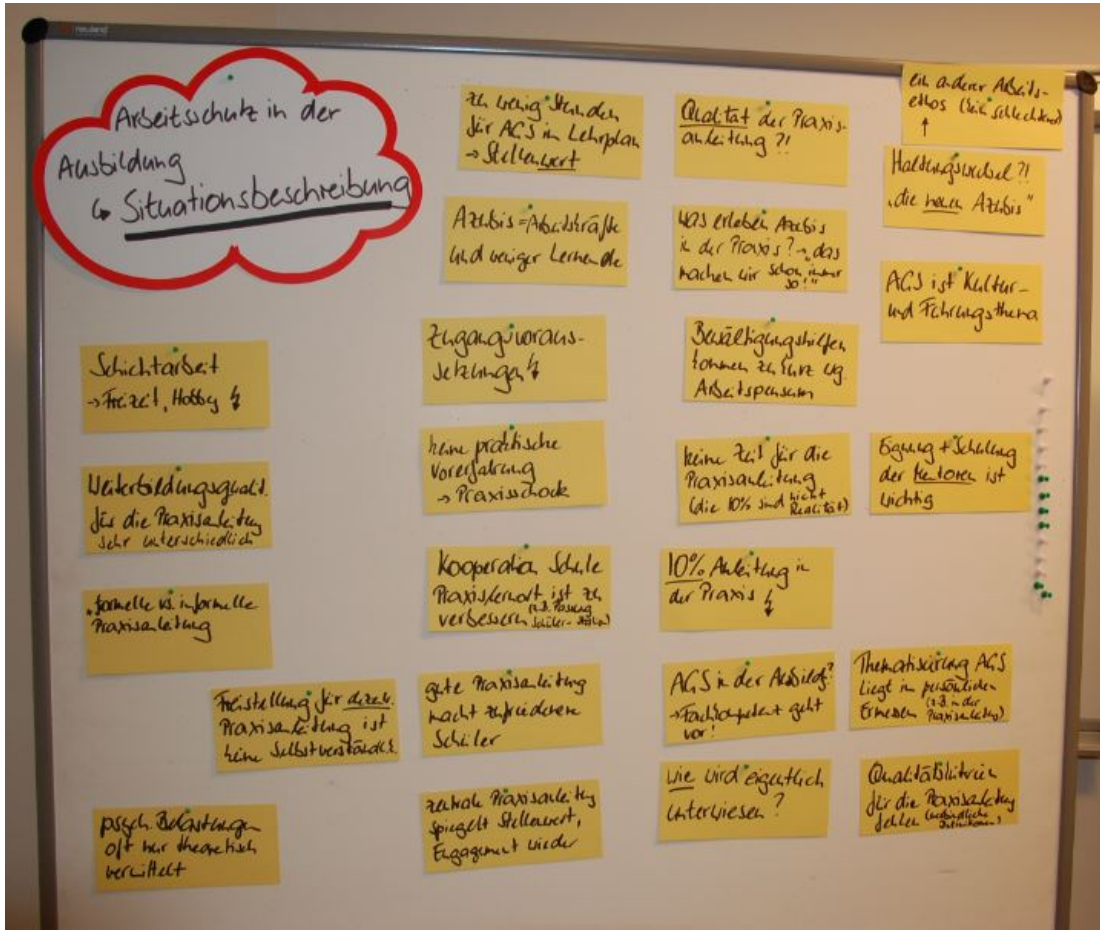 neuland
Arbeitsschutz in der
Ausbildung
↳ Situationsbeschreibung
Schichtarbeit
→ Freizeit, Hobby ↯
Weiterbildungsqualit.
für die Praxisanleitung
sehr unterschiedlich
"formelle vs. informelle
Praxisanleitung
Freistellung für dezentr.
Praxisanleitung ist
keine Selbstverständlk.
psych. Belastungen
oft nur theoretisch
vermittelt
zu wenig Stunden
für AGS im Lehrplan
→ Stellenwert
Azubis = Arbeitskräfte
und weniger Lernende
Zugangsvoraus-
setzungen ↯
keine praktische
Vorerfahrung
→ Praxisschock
Kooperation Schule
Praxis/Lernort ist zu
verbessern (z.B. Passung
Schüler-Station)
gute Praxisanleitung
macht zufriedenere
Schüler
zentrale Praxisanleitg
spiegelt Stellenwert,
Engagement wieder
Qualität der Praxis-
anleitung ?!
was erleben Azubis
in der Praxis? → "das
machen wir schon immer
so!"
Bewältigungshilfen
kommen zu kurz wg.
Arbeitspensum
keine Zeit für die
Praxisanleitung
(die 10% sind nicht
Realität)
10% Anleitung in
der Praxis ↯
AGS in der Ausbildg?
→ Fachkompetent geht
vor!
wie wird eigentlich
unterwiesen?
ein anderer Arbeits-
ethos (kein schlechterer)
↑
Haltungswechsel ?!
"die neuen Azubis"
AGS ist Kultur-
und Führungsthema
Eignung + Schulung
der Mentoren ist
wichtig
Thematisierung AGS
liegt im persönlichen
Ermessen (z.B. in der
Praxisanleitung)
Qualitätskriterien
für die Praxisanleitg
fehlen (verbindliche